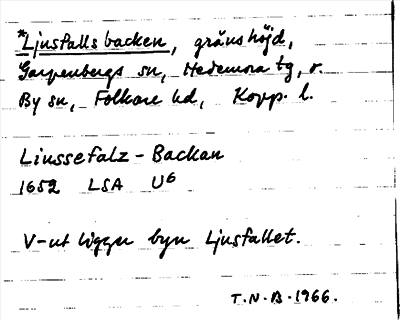 *Ljusfallsbacken, gränshöjd,
Garpenbergs sn, Hedemora tg, o.
By sn, Folkare hd, Kopp. l.
Liussefalz-Backan
1652 LSA U6
V-ut ligger byn Ljusfallet.
T.N.B. 1966.